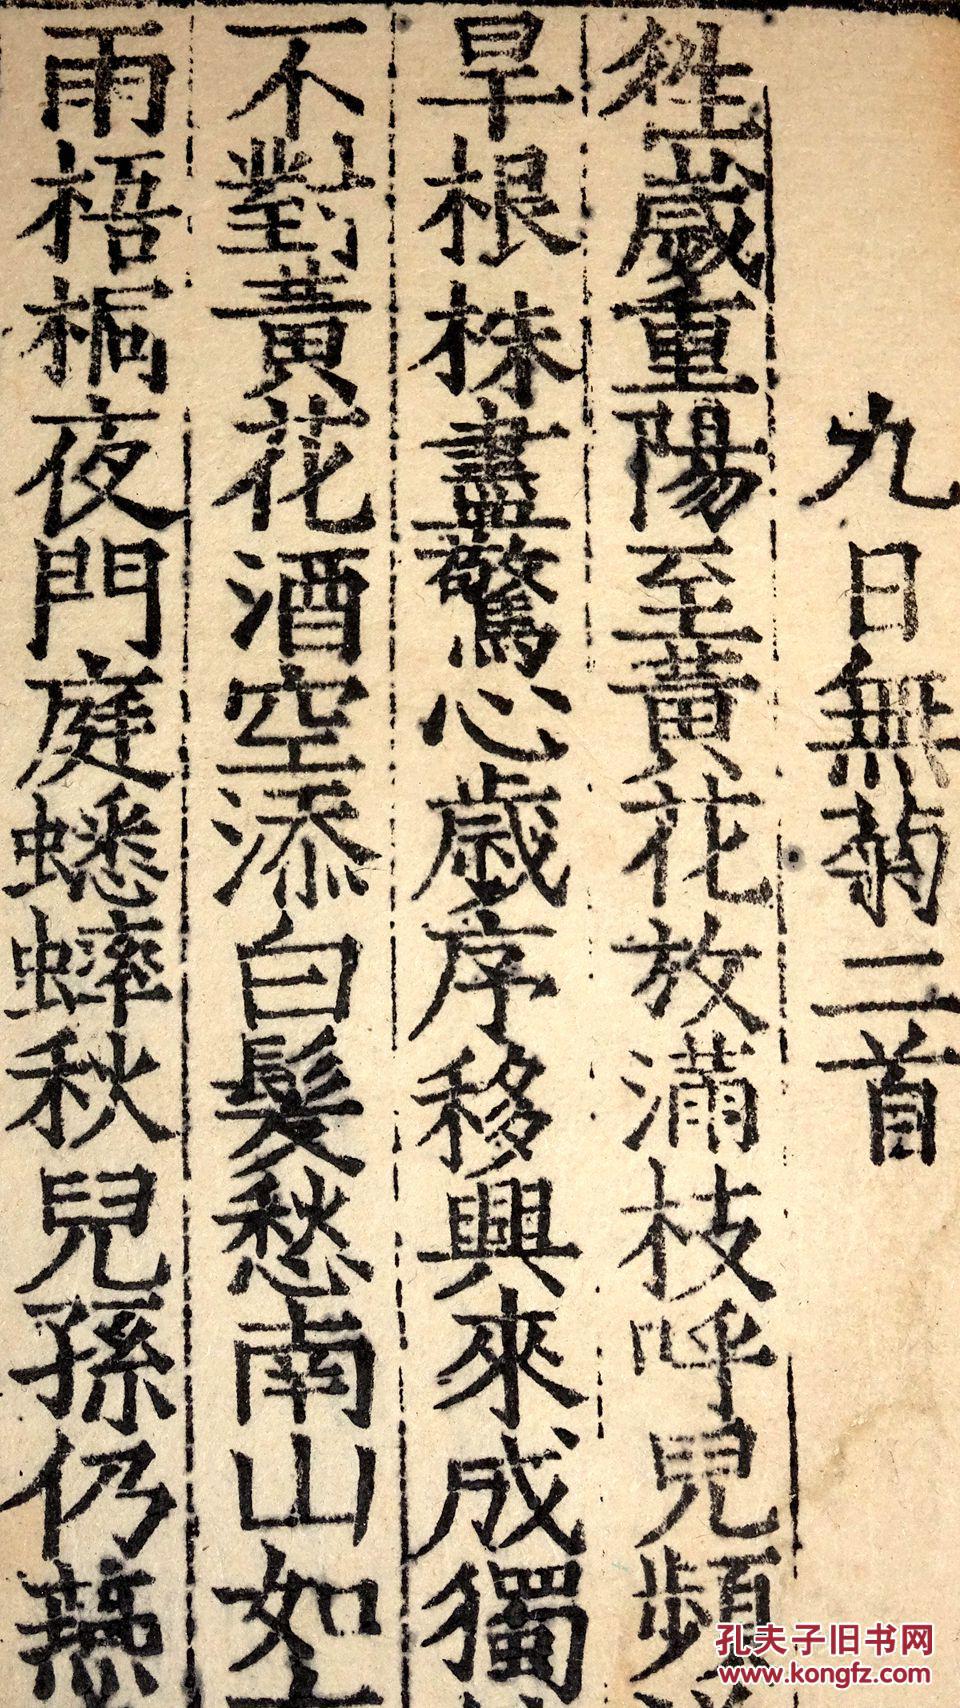 九日無菊二首
徃歲重陽至黃花放滿枝呼兒頻
旱根株盡驚心歲序移興來成獨
不對黃花酒空添白髮愁南山如
雨梧桐夜門庭蟋蟀秋兒孫仍
孔夫子旧书网
www.kongfz.com